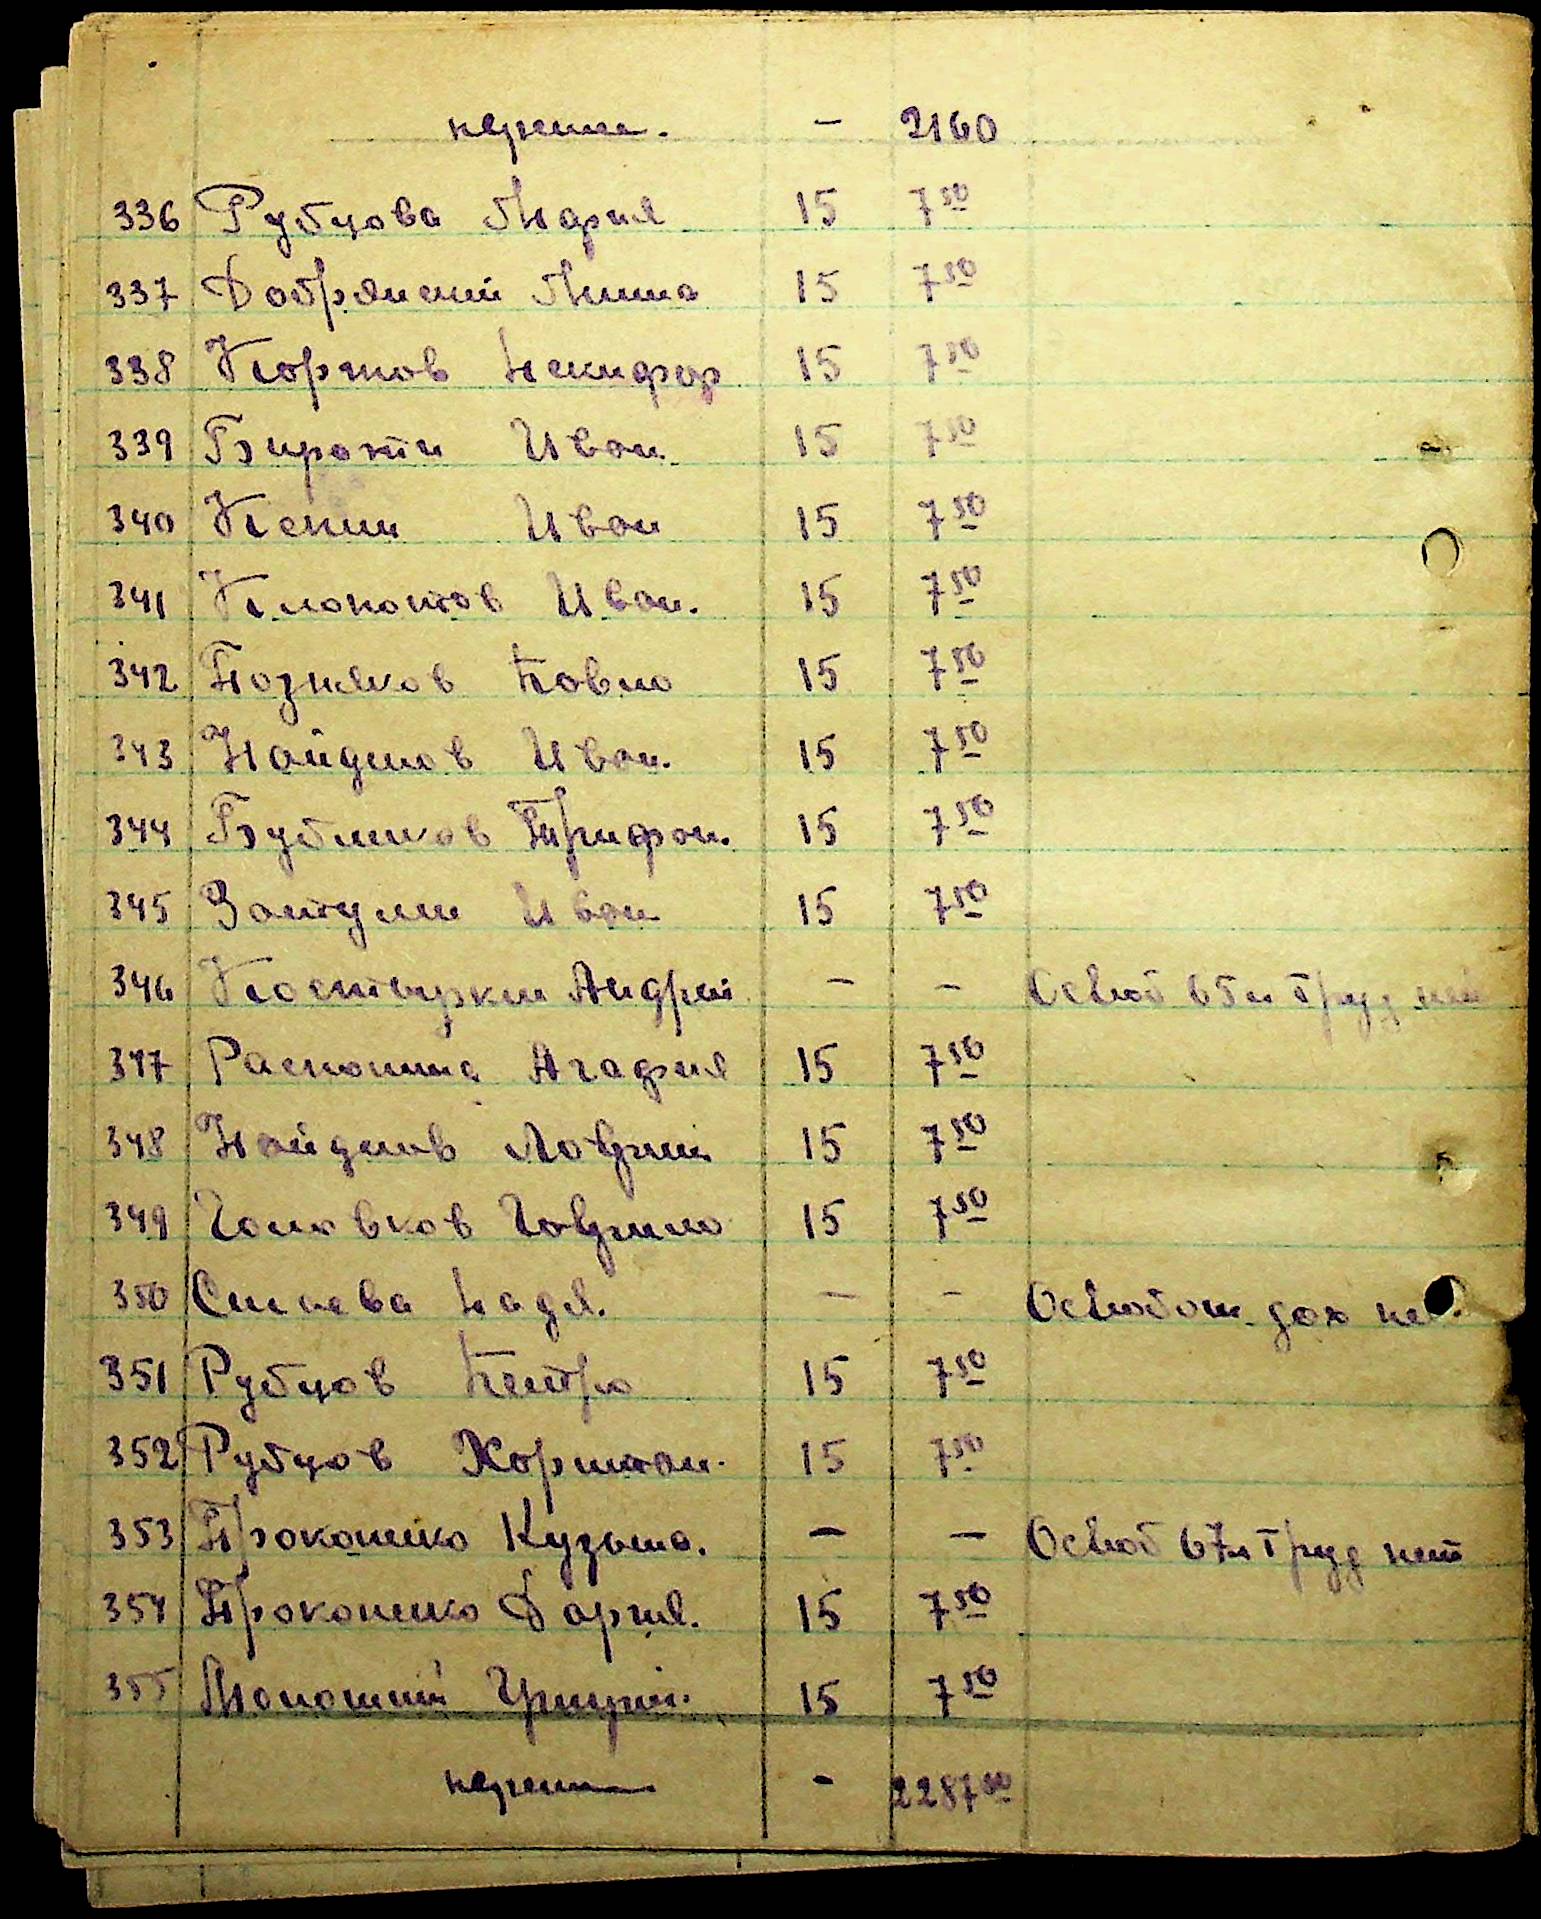 перенос. - 2160
336 Рубцова Мария 15 7 50
337 Добрянский Мина 15 7 50
338 Коржов Некифор 15 7 50
339 Иван 15 7 50
340 Иван 15 7 50
341 Клокотов Иван. 15 7 50
342 Позняков Павло 15 7 50
343 Найденов Иван. 15 7 50
344 Бубликов Трифон. 15 7 50
345 Иван 15 7 50
346 Андрей - - Освоб 65 л Труд нет
347 Агафия 15 7 50
348 Найденов 15 7 50
349 Головков Гаврило 15 7 50
350 Надя. - - дох не
351 Рубцов Петро 15 7 50
352 Рубцов 15 7 50
353 Прокопенко Кузьма. - - Освоб 67 л Труд нет
354 Прокопенко Дария. 15 7 50
355 Григорий. 15 7 50
перенос - 2287 50